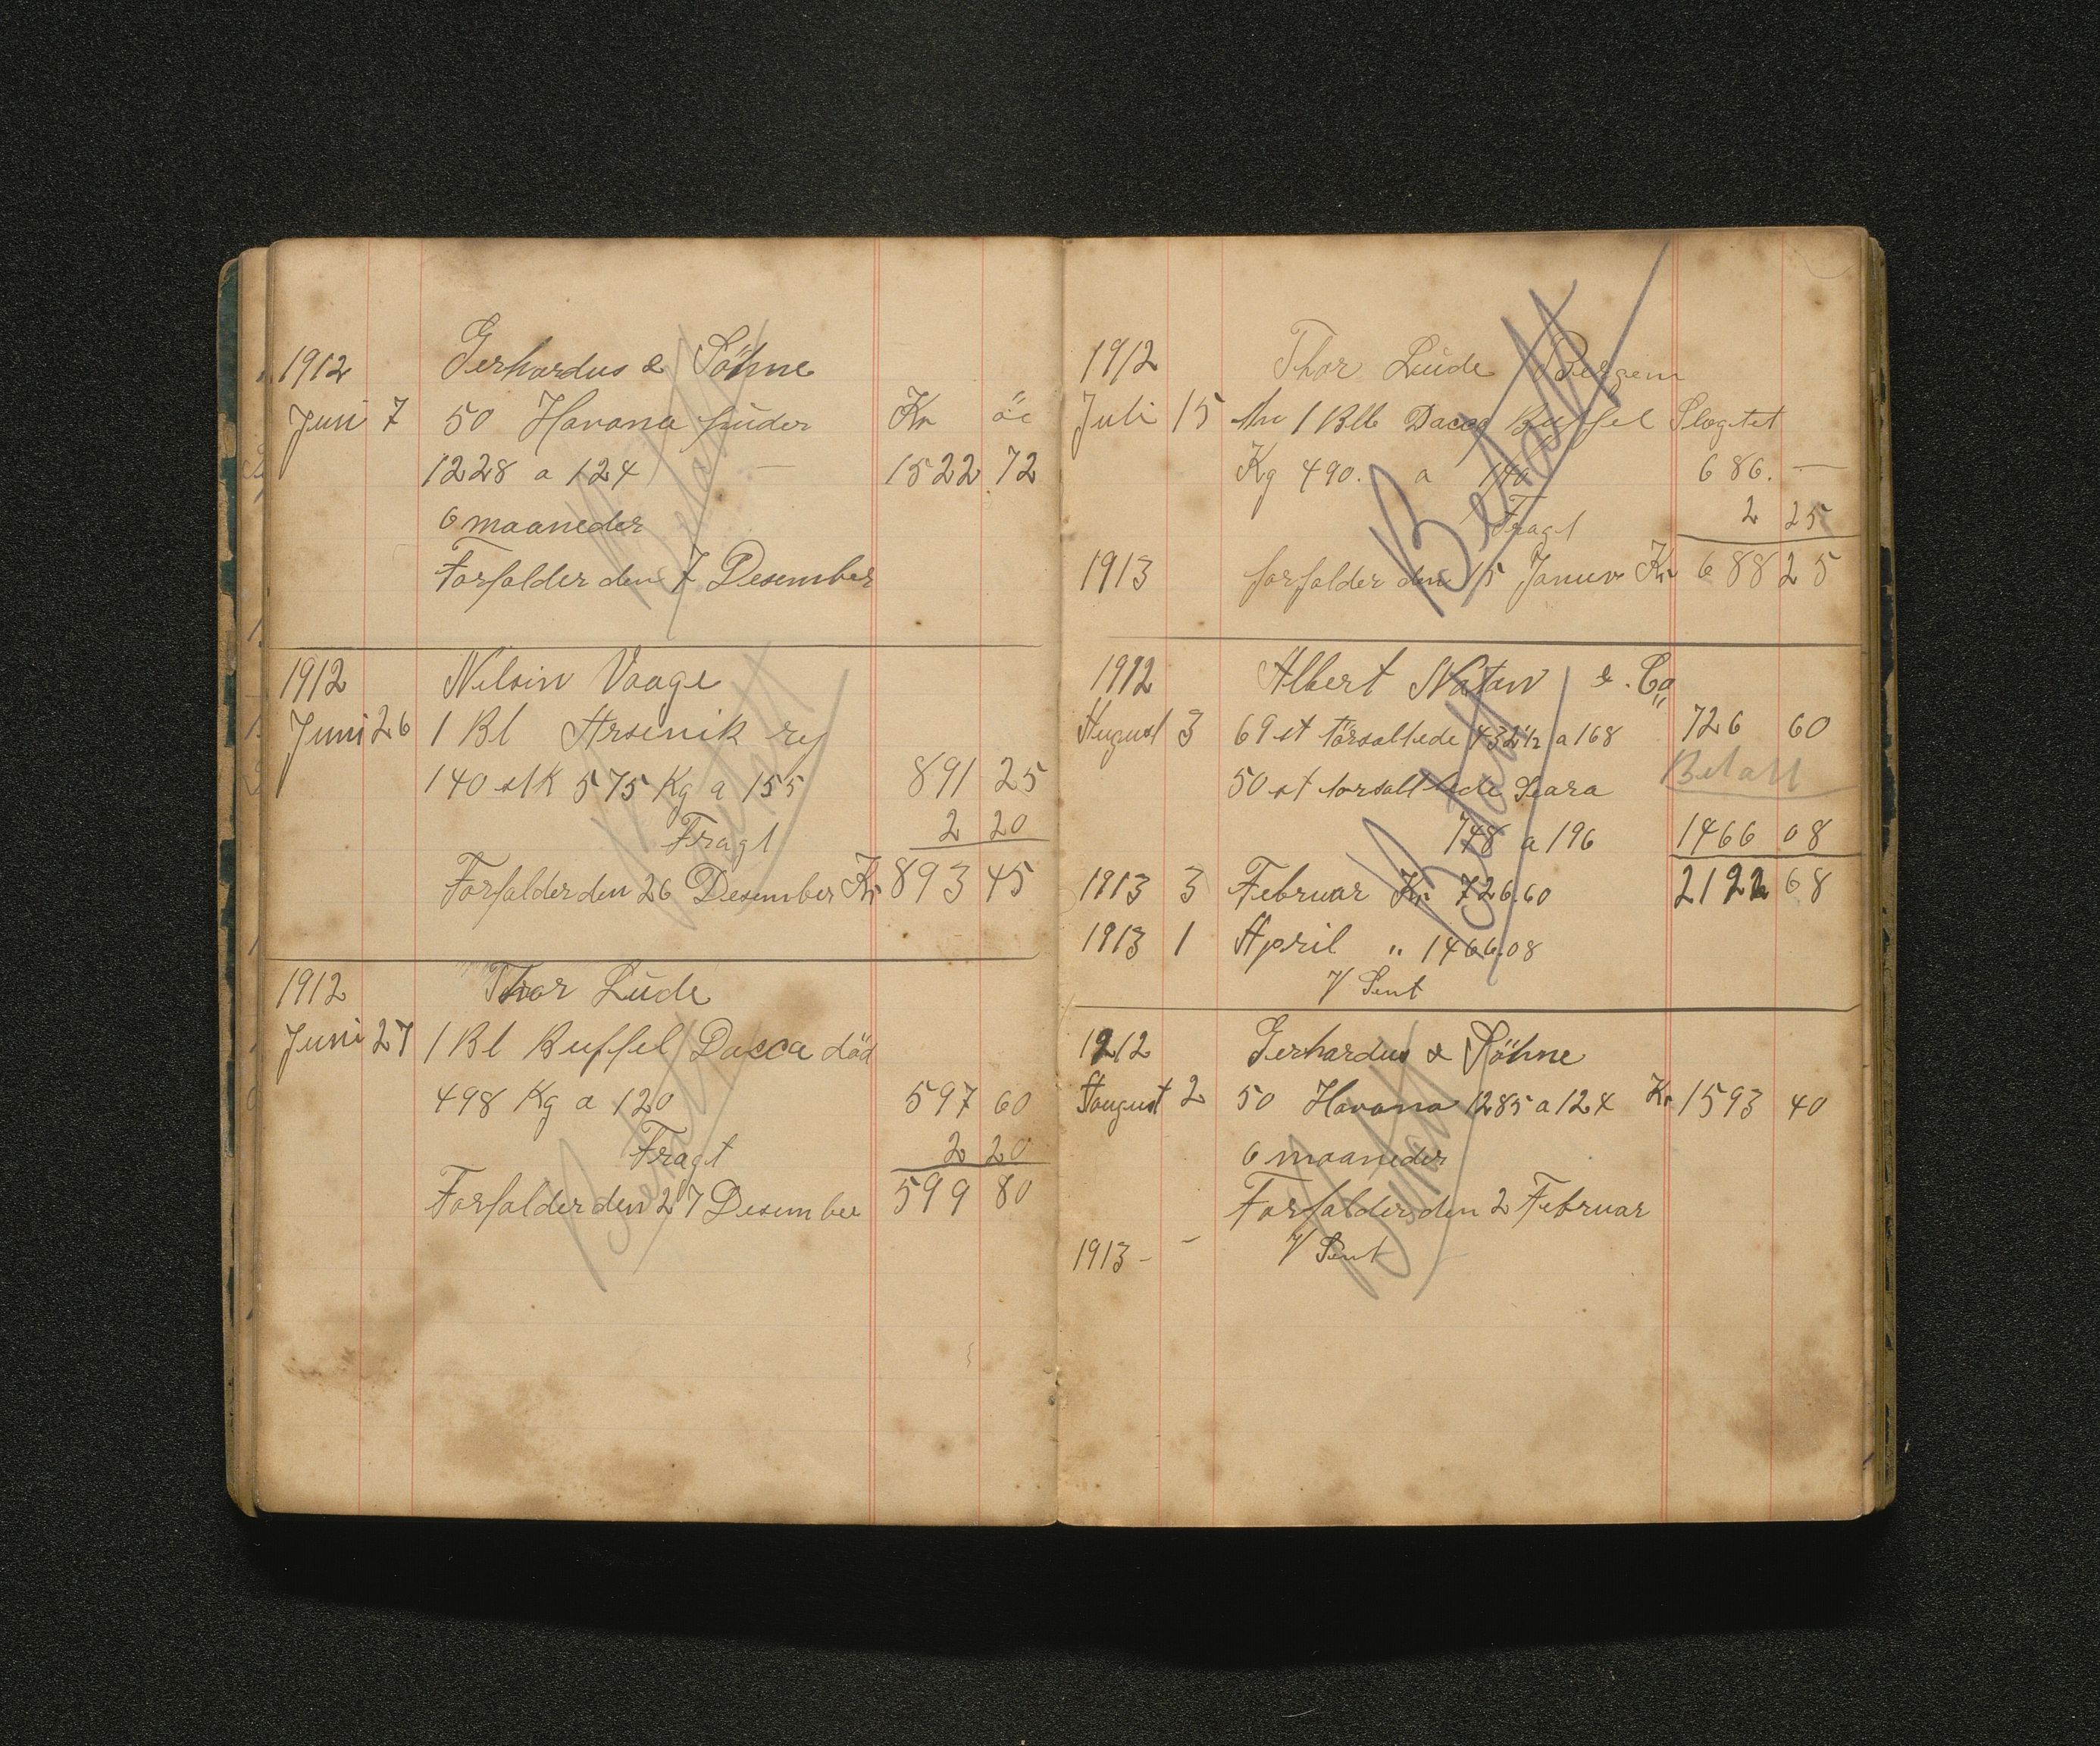 1912 Gerhardus & Söhne
Juni 7 50 Havana huder Kr öre
1228 a 124 — 1522 72
6 maaneder
Forfalder den 7 Desember
Betalt
1912 Nilsin Vaage
Juni 26 1 Bl Arsenik
140 stk 575 Kg a 155 891 25
Fragt 2 20
Forfalder den 26 Desember Kr 893 45
Betalt
1912 Thor Lude
Juni 27 1 Bl Buffel Dacca död
498 Kg a 120 597 60
Fragt 2 20
Forfalder den 27 Desember 599 80
Betalt
1912 Thor Lude Bergen
Juli 15 1 Blb Dacca Buffel Slagtet
Kg 490. a 140 686. —
Fragt 2 25
1913 forfalder den 15 Januar Kr 688 25
Betalt
1912 Albert Natan & Co
August 3 69 st törsaltede 432½ a 168 726 60
50 st torsaltede Seara Betalt
748 a 196 1466 08
1913 3 Februar Kr 726.60 2122 68
1913 1 April " 1466.08
V Sent
Betalt
1912 Gerhardus & Söhne
August 2 50 Havana 1285 a 124 Kr 1593 40
6 maaneder
Forfalder den 2 Februar
1913 - - V Sent
Betalt